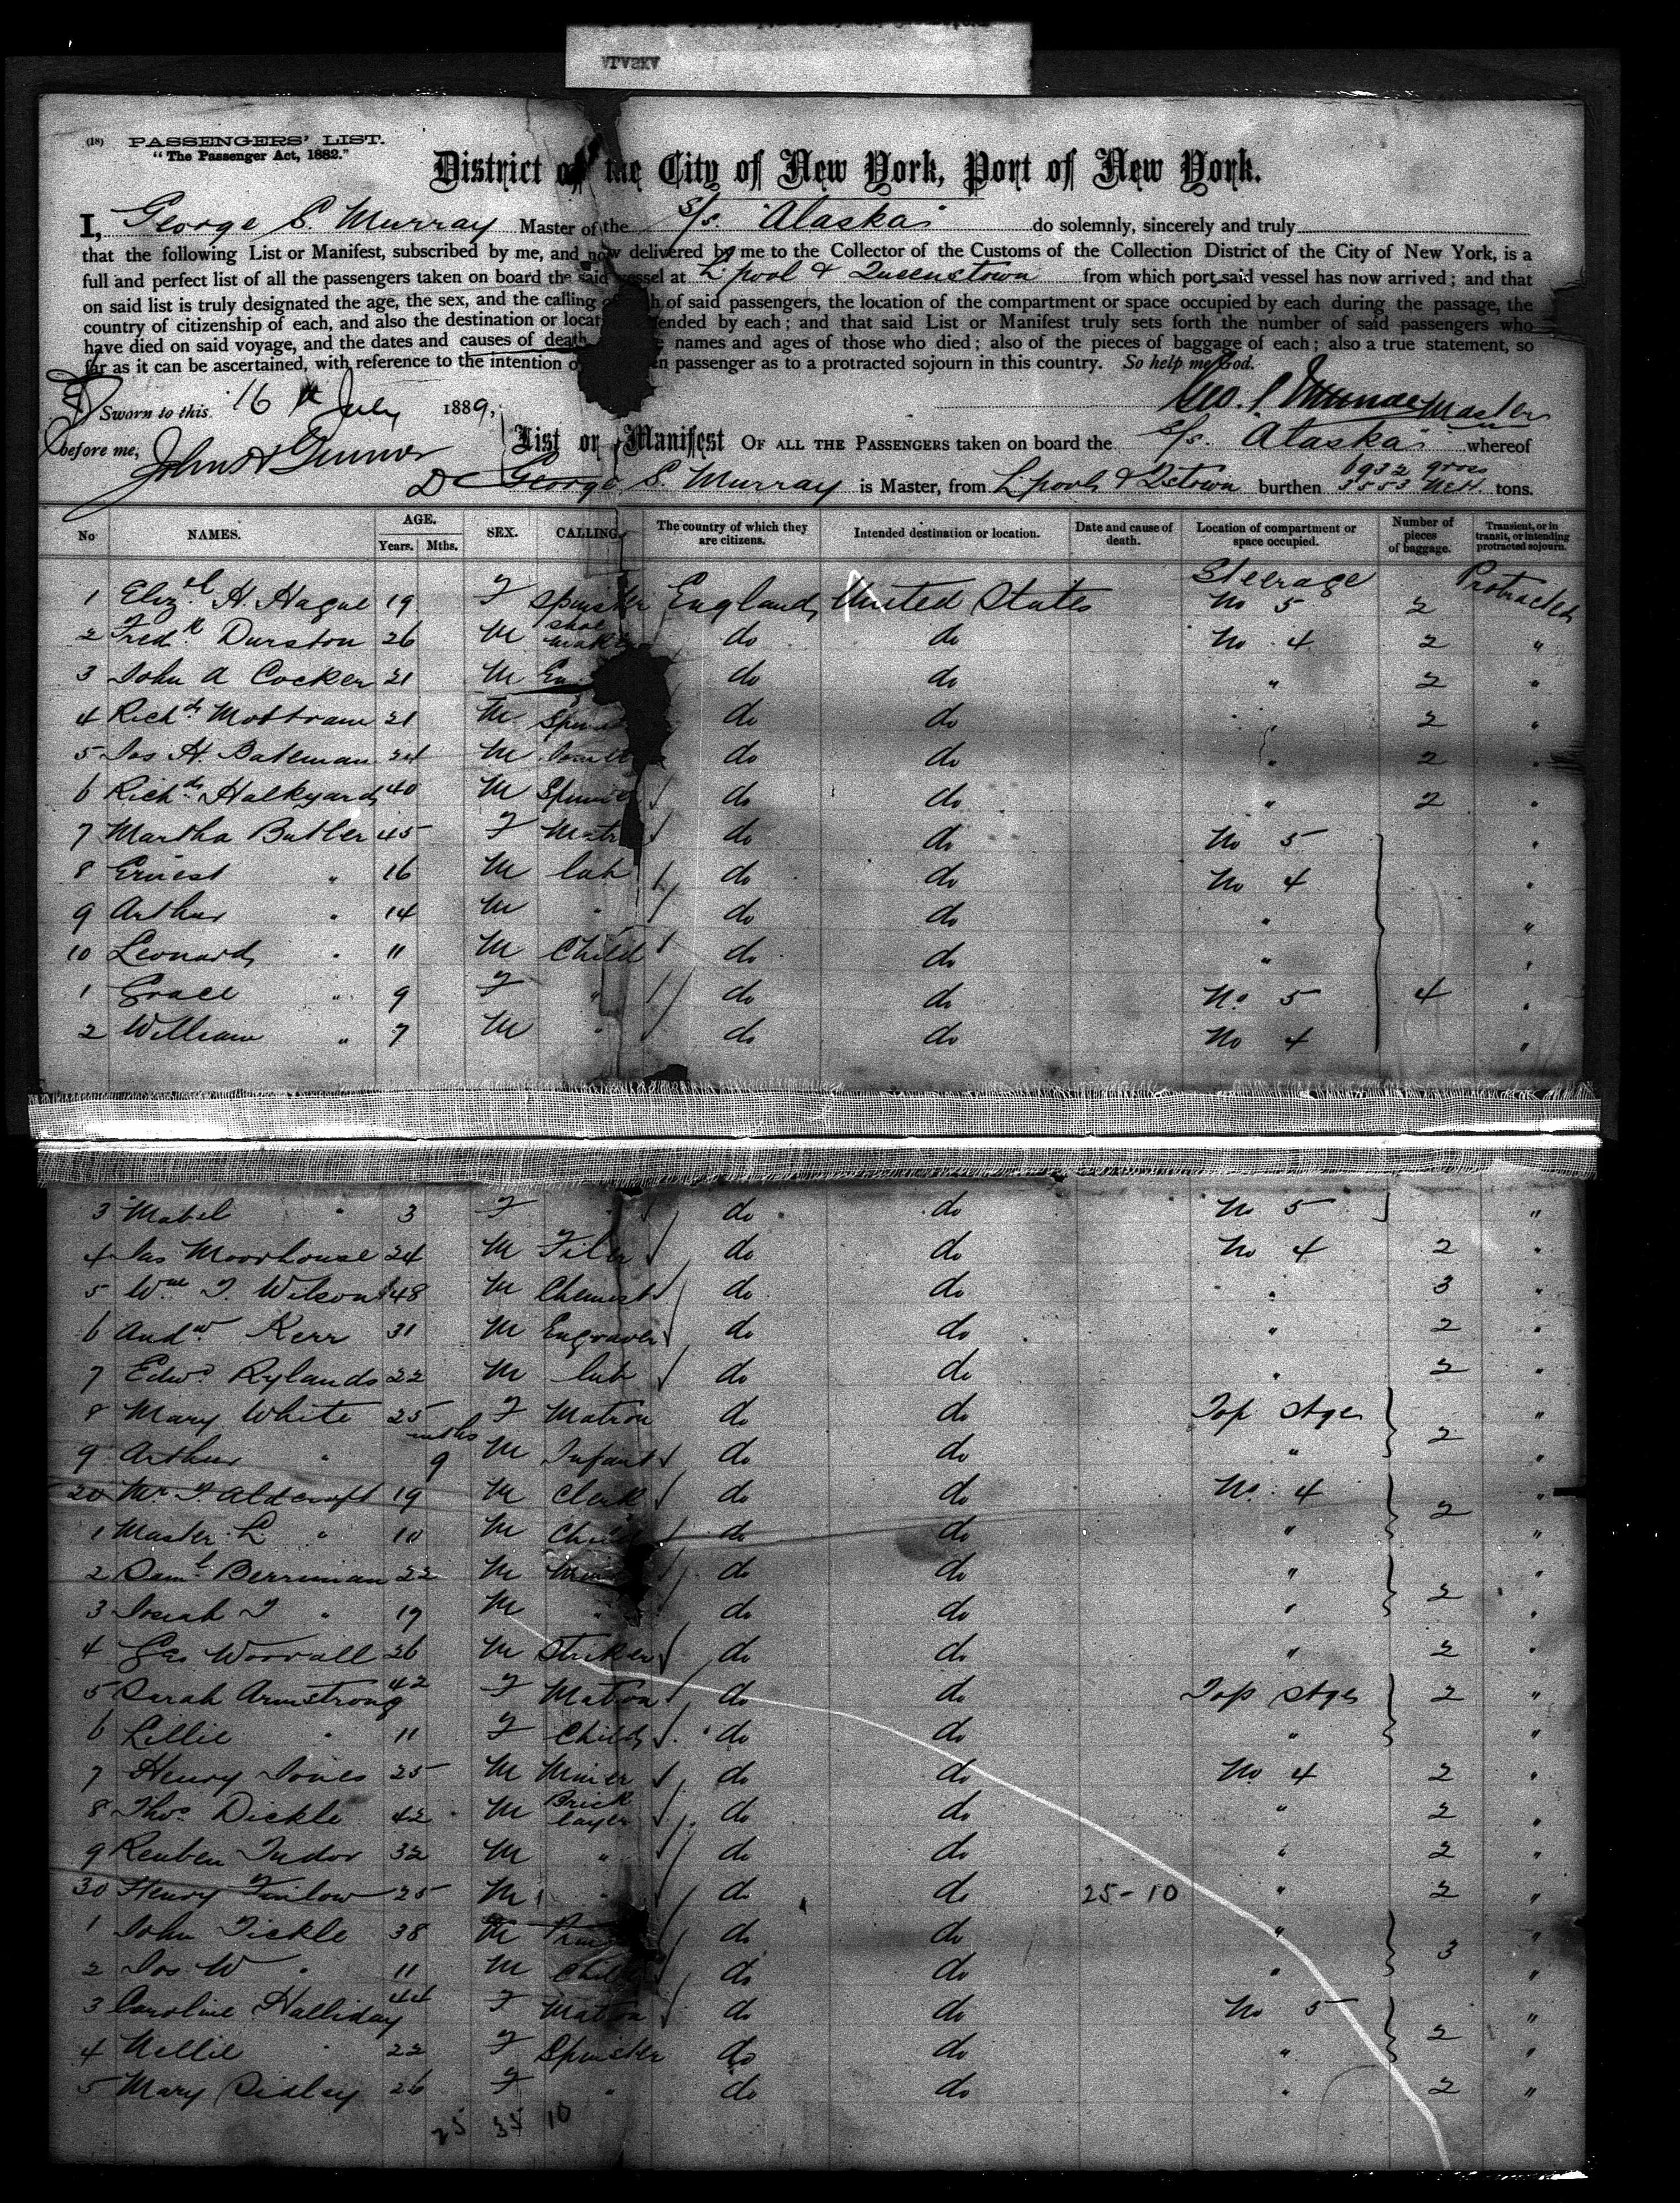 ALASKA
(18) PASSENGERS' LIST.
"The Passenger Act, 1882."
District of the City of New York, Port of New York.
I, George S. Murray Master of the S/s. "Alaska" do solemnly, sincerely and truly
that the following List or Manifest, subscribed by me, and now delivered by me to the Collector of the Customs of the Collection District of the City of New York, is a
full and perfect list of all the passengers taken on board the said vessel at L'pool & Queenstown from which port said vessel has now arrived; and that
on said list is truly designated the age, the sex, and the calling of said passengers, the location of the compartment or space occupied by each during the passage, the
country of citizenship of each, and also the destination or locat ended by each; and that said List or Manifest truly sets forth the number of said passengers who
have died on said voyage, and the dates and causes of death names and ages of those who died; also of the pieces of baggage of each; also a true statement, so
far as it can be ascertained, with reference to the intention o en passenger as to a protracted sojourn in this country. So help me God.
Sworn to this 16th July 1889, Geo. S. Murray Master
before me, List or Manifest OF ALL THE PASSENGERS taken on board the S/s. Alaska whereof
George S. Murray is Master, from L'pool & Qtown burthen 6932 gross 3553 Nett. tons.
No NAMES. AGE. Years. Mths. SEX. CALLING. The country of which they are citizens. Intended destination or location. Date and cause of death. Location of compartment or space occupied. Number of pieces of baggage. Transient, or in transit, or intending protracted sojourn.
1 Elizth H. Hague 19 F Spinster England United States Steerage No 5 2 Protracted
2 Fredk Durston 26 M Shoe maker do do No 4 2 "
3 John A Cocker 21 M En do do " 2 "
4 Richd Mottram 21 M Spinn do do " 2 "
5 Jos H. Bateman 24 M do do " 2 "
6 Richd Halkyard 40 M Spinner do do " 2 "
7 Martha Butler 45 F Matr do do No 5 "
8 Ernest " 16 M lab do do No 4 "
9 Arthur " 14 M " do do " "
10 Leonard " 11 M Child do do " "
1 Grace " 9 F " do do No 5 4 "
2 William " 7 M " do do No 4 "
3 Mabel " 3 F " do do No 5 "
4 Jas Moorhouse 24 M Filer do do No 4 2 "
5 Wm T. Wilson 48 M Chemist do do " 3 "
6 Andw Kerr 31 M Engraver do do " 2 "
7 Edwd Rylands 22 M lab do do " 2 "
8 Mary White 25 F Matron do do Top Stge 2 "
9 Arthur " mths 9 M Infant do do " "
20 Mr T. Aldcroft 19 M Clerk do do No 4 2 "
1 Master L " 10 M Child do do " "
2 Saml Berriman 22 M do do " 2 "
3 Josiah T " 19 M " do do " "
4 Geo Worrall 26 M Striker do do " 2 "
5 Sarah Armstrong 42 F Matron do do Top Stge 2 "
6 Lillie " 11 F Child do do " "
7 Henry Jones 25 M Miner do do No 4 2 "
8 Thos Dickle 42 M Brick layer do do " 2 "
9 Reuben Tudor 32 M " do do " 2 "
30 Henry 25 M " do do 25-10 " 2 "
1 John Tickle 38 M do do " 3 "
2 Jos W " 11 M Child do do " "
3 Caroline Halliday 44 F Matron do do No 5 2 "
4 Nellie " 22 F Spinster do do " "
5 Mary Sidley 26 F " do do " 2 "
25 35 10